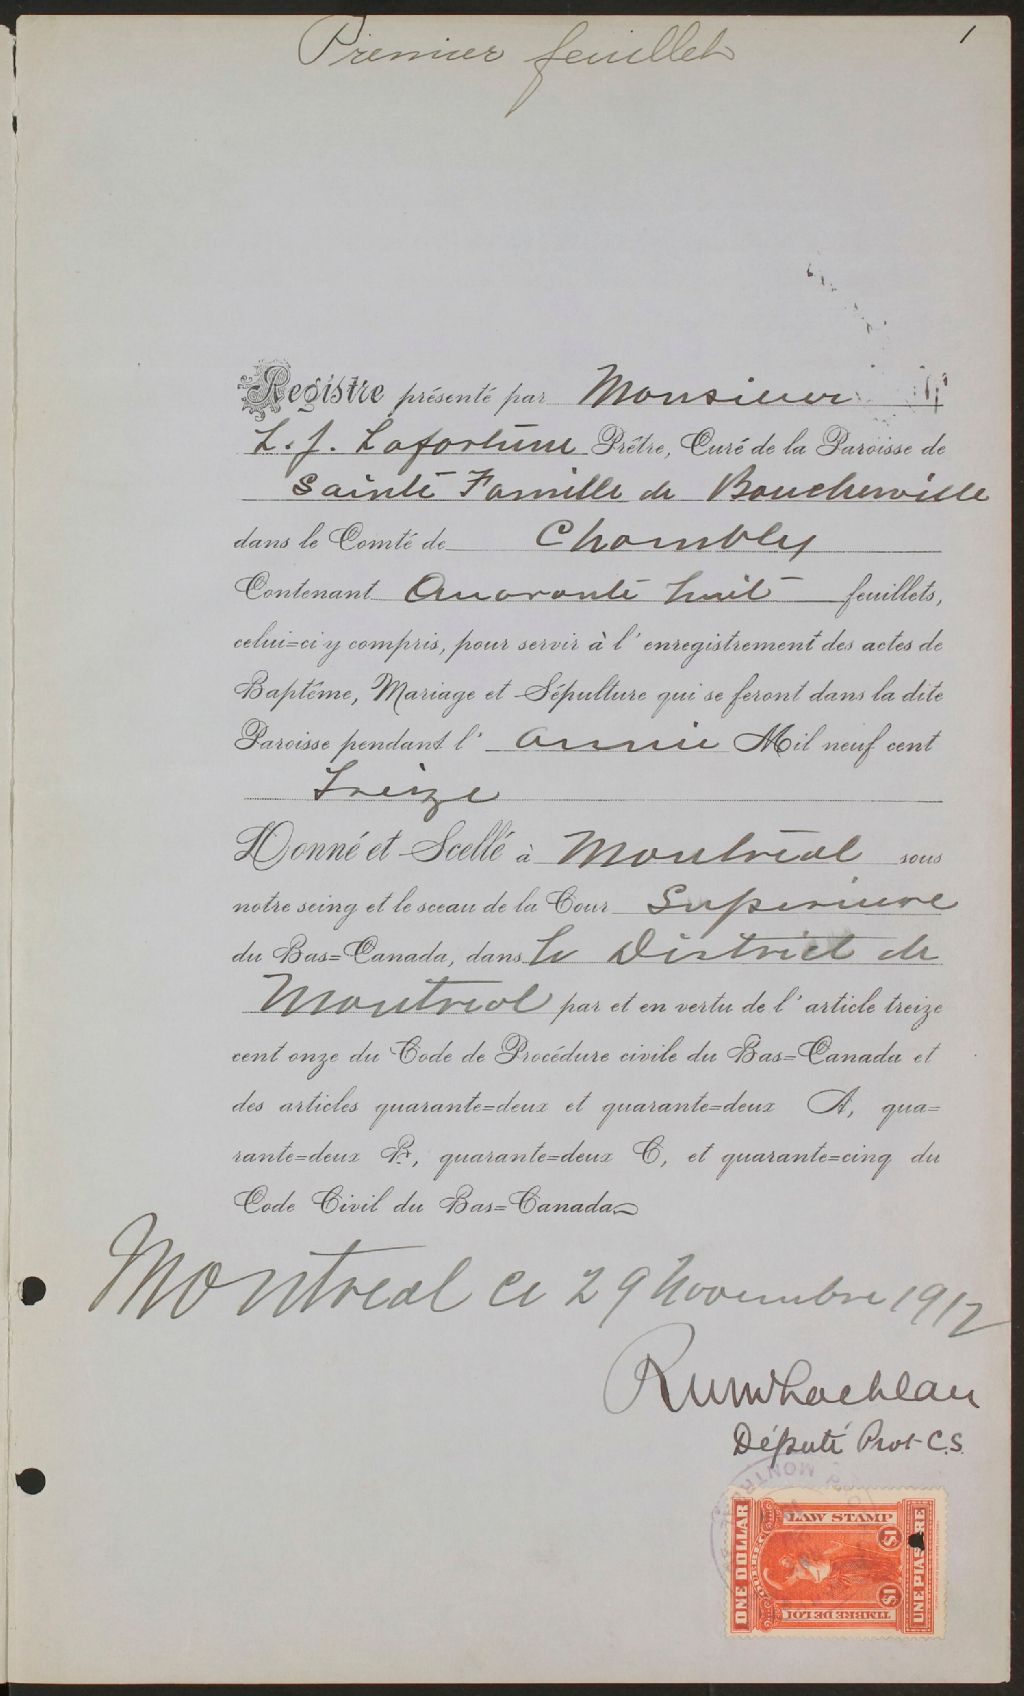 Premier feuillet
1
Registre présenté par Monsieur
L. J. Lafortune Prêtre, Curé de la Paroisse de
Sainte Famille de Boucherville
dans le Comté de Chambly
Contenant Quarante huit feuillets,
celui=ci y compris, pour servir à l'enregistrement des actes de
Baptême, Mariage et Sépulture qui se feront dans la dite
Paroisse pendant l'année Mil neuf cent
treize
Donné et Scellé à Montréal sous
notre seing et le sceau de la Cour Superieure
du Bas=Canada, dans le District de
Montreal par et en vertu de l'article treize
cent onze du Code de Procédure civile du Bas=Canada et
des articles quarante=deux et quarante=deux A, qua=
rante=deux B, quarante=deux C, et quarante=cinq du
Code Civil du Bas=Canada
Montreal ce 29 Novembre 1912
Député Prot C.S.
ONE DOLLAR
QUEBEC
LAW STAMP
$1
$1
TIMBRE DE LOI
UNE PIASTRE
MONTREAL